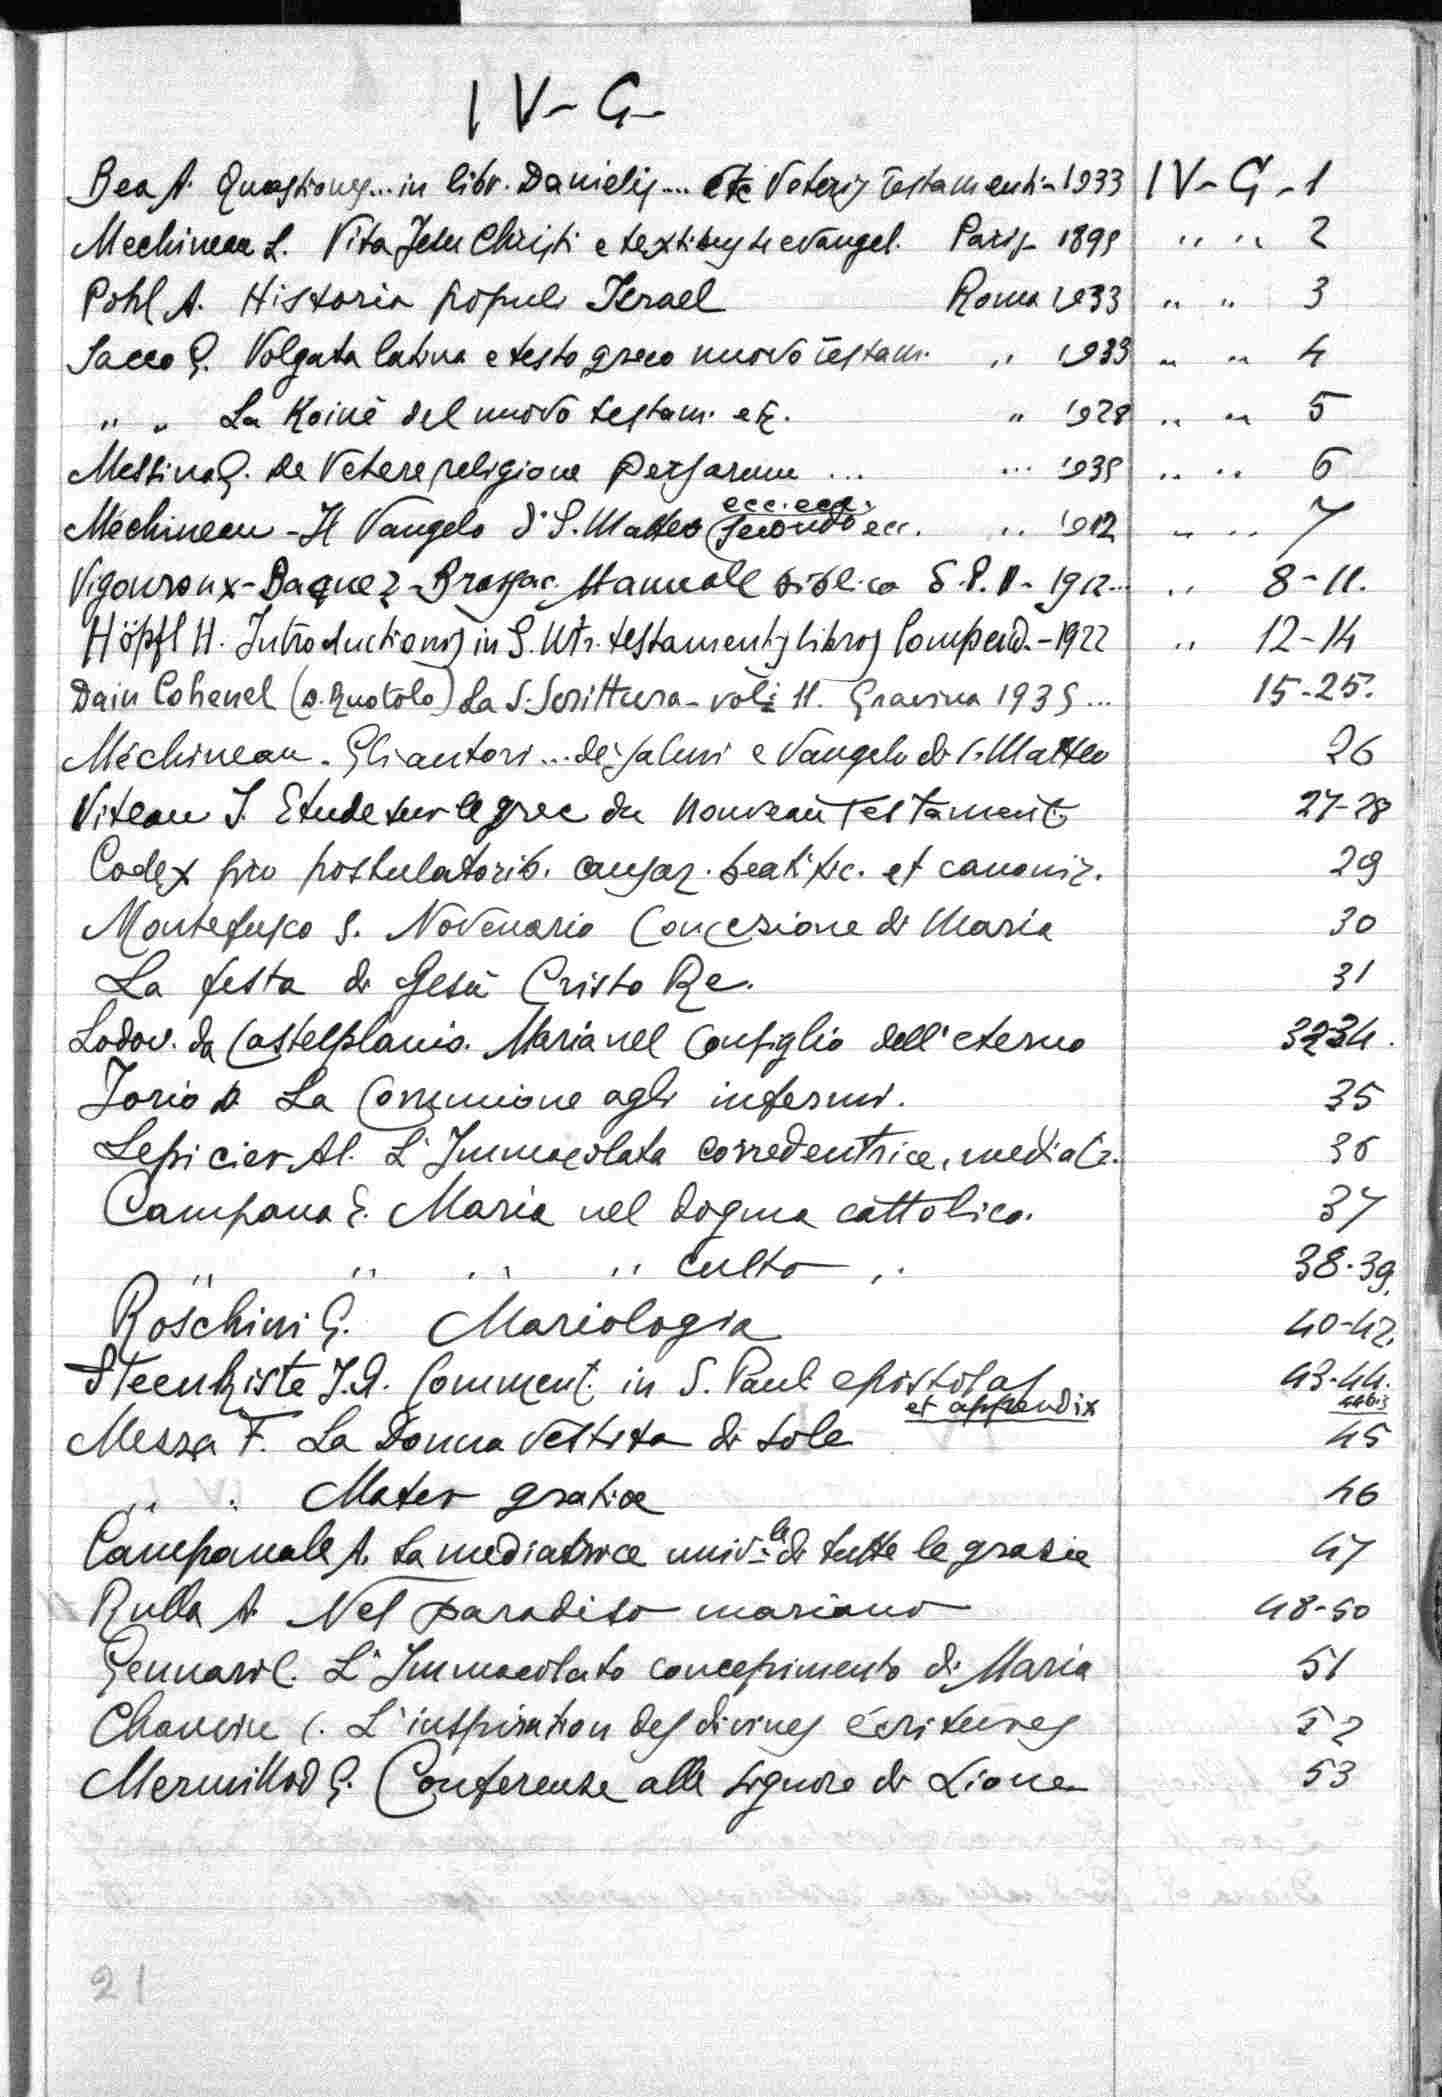 IV - G -
Bea A. Quaestiones... in libr. Danielis.... etc Veteris Testamenti - 1933 IV - G - 1
Mechineau L. Vita Jesu Christi e textibus evangel. Paris 1899 " " 2
Pohl A. Historia populi Israel Roma 1933 " " 3
Sacco G. Volgata latina e testo greco nuovo testam. " 1933 " " 4
" " La Koinè del nuovo testam. etc. " 1928 " " 5
Messina G. De Vetere religione Persarum ... ... 1935 " " 6
Mechineau - Il Vangelo di S. Matteo (secondo ecc. ecc. ecc. " 1912 " " 7
Vigouroux - Baquez - Brassac. Manuale biblico S. P. V - 1912... " 8-11.
Höpfl H. Introductionis in S. utr. testamentis libros Compend. - 1922 " 12-14
Dain Cohenel (D. Ruotolo) La S. Scrittura - voli 11. Gravina 1939 ... 15-25.
Méchineau - Gli autori ... dei salmi e Vangelo di S. Matteo 26
Viteau J. Etude sur le grec du Nouveau Testament 27-28
Codex pro postulatorib. causar. beatific. et canoniz. 29
Montefusco S. Novenario Concezione di Maria 30
La festa di Gesù Cristo Re. 31
Lodov. da Castelplanio. Maria nel Consiglio dell'eterno 32-34.
Jorio D. La Comunione agli infermi. 35
Lepicier Al. L'Immacolata corredentrice, mediatr. 36
Campana E. Maria nel dogma cattolico. 37
" " " " culto " 38-39.
Roschini G. Mariologia 40-42.
Steenkiste J.A. Comment. in S. Pauli epistolas 43-44.
et appendix 44bis
Mezza F. La Donna vestita di sole 45
" " Mater gratiae 46
Campanale A. La mediatrice univ.le di tutte le grazie 47
Rulla A. Nel paradiso mariano 48-50
Gennari C. L'Immacolato concepimento di Maria 51
Chauvin C. L'inspiration des divines écritures 52
Mermillod G. Conferenze alle signore di Lione 53
21